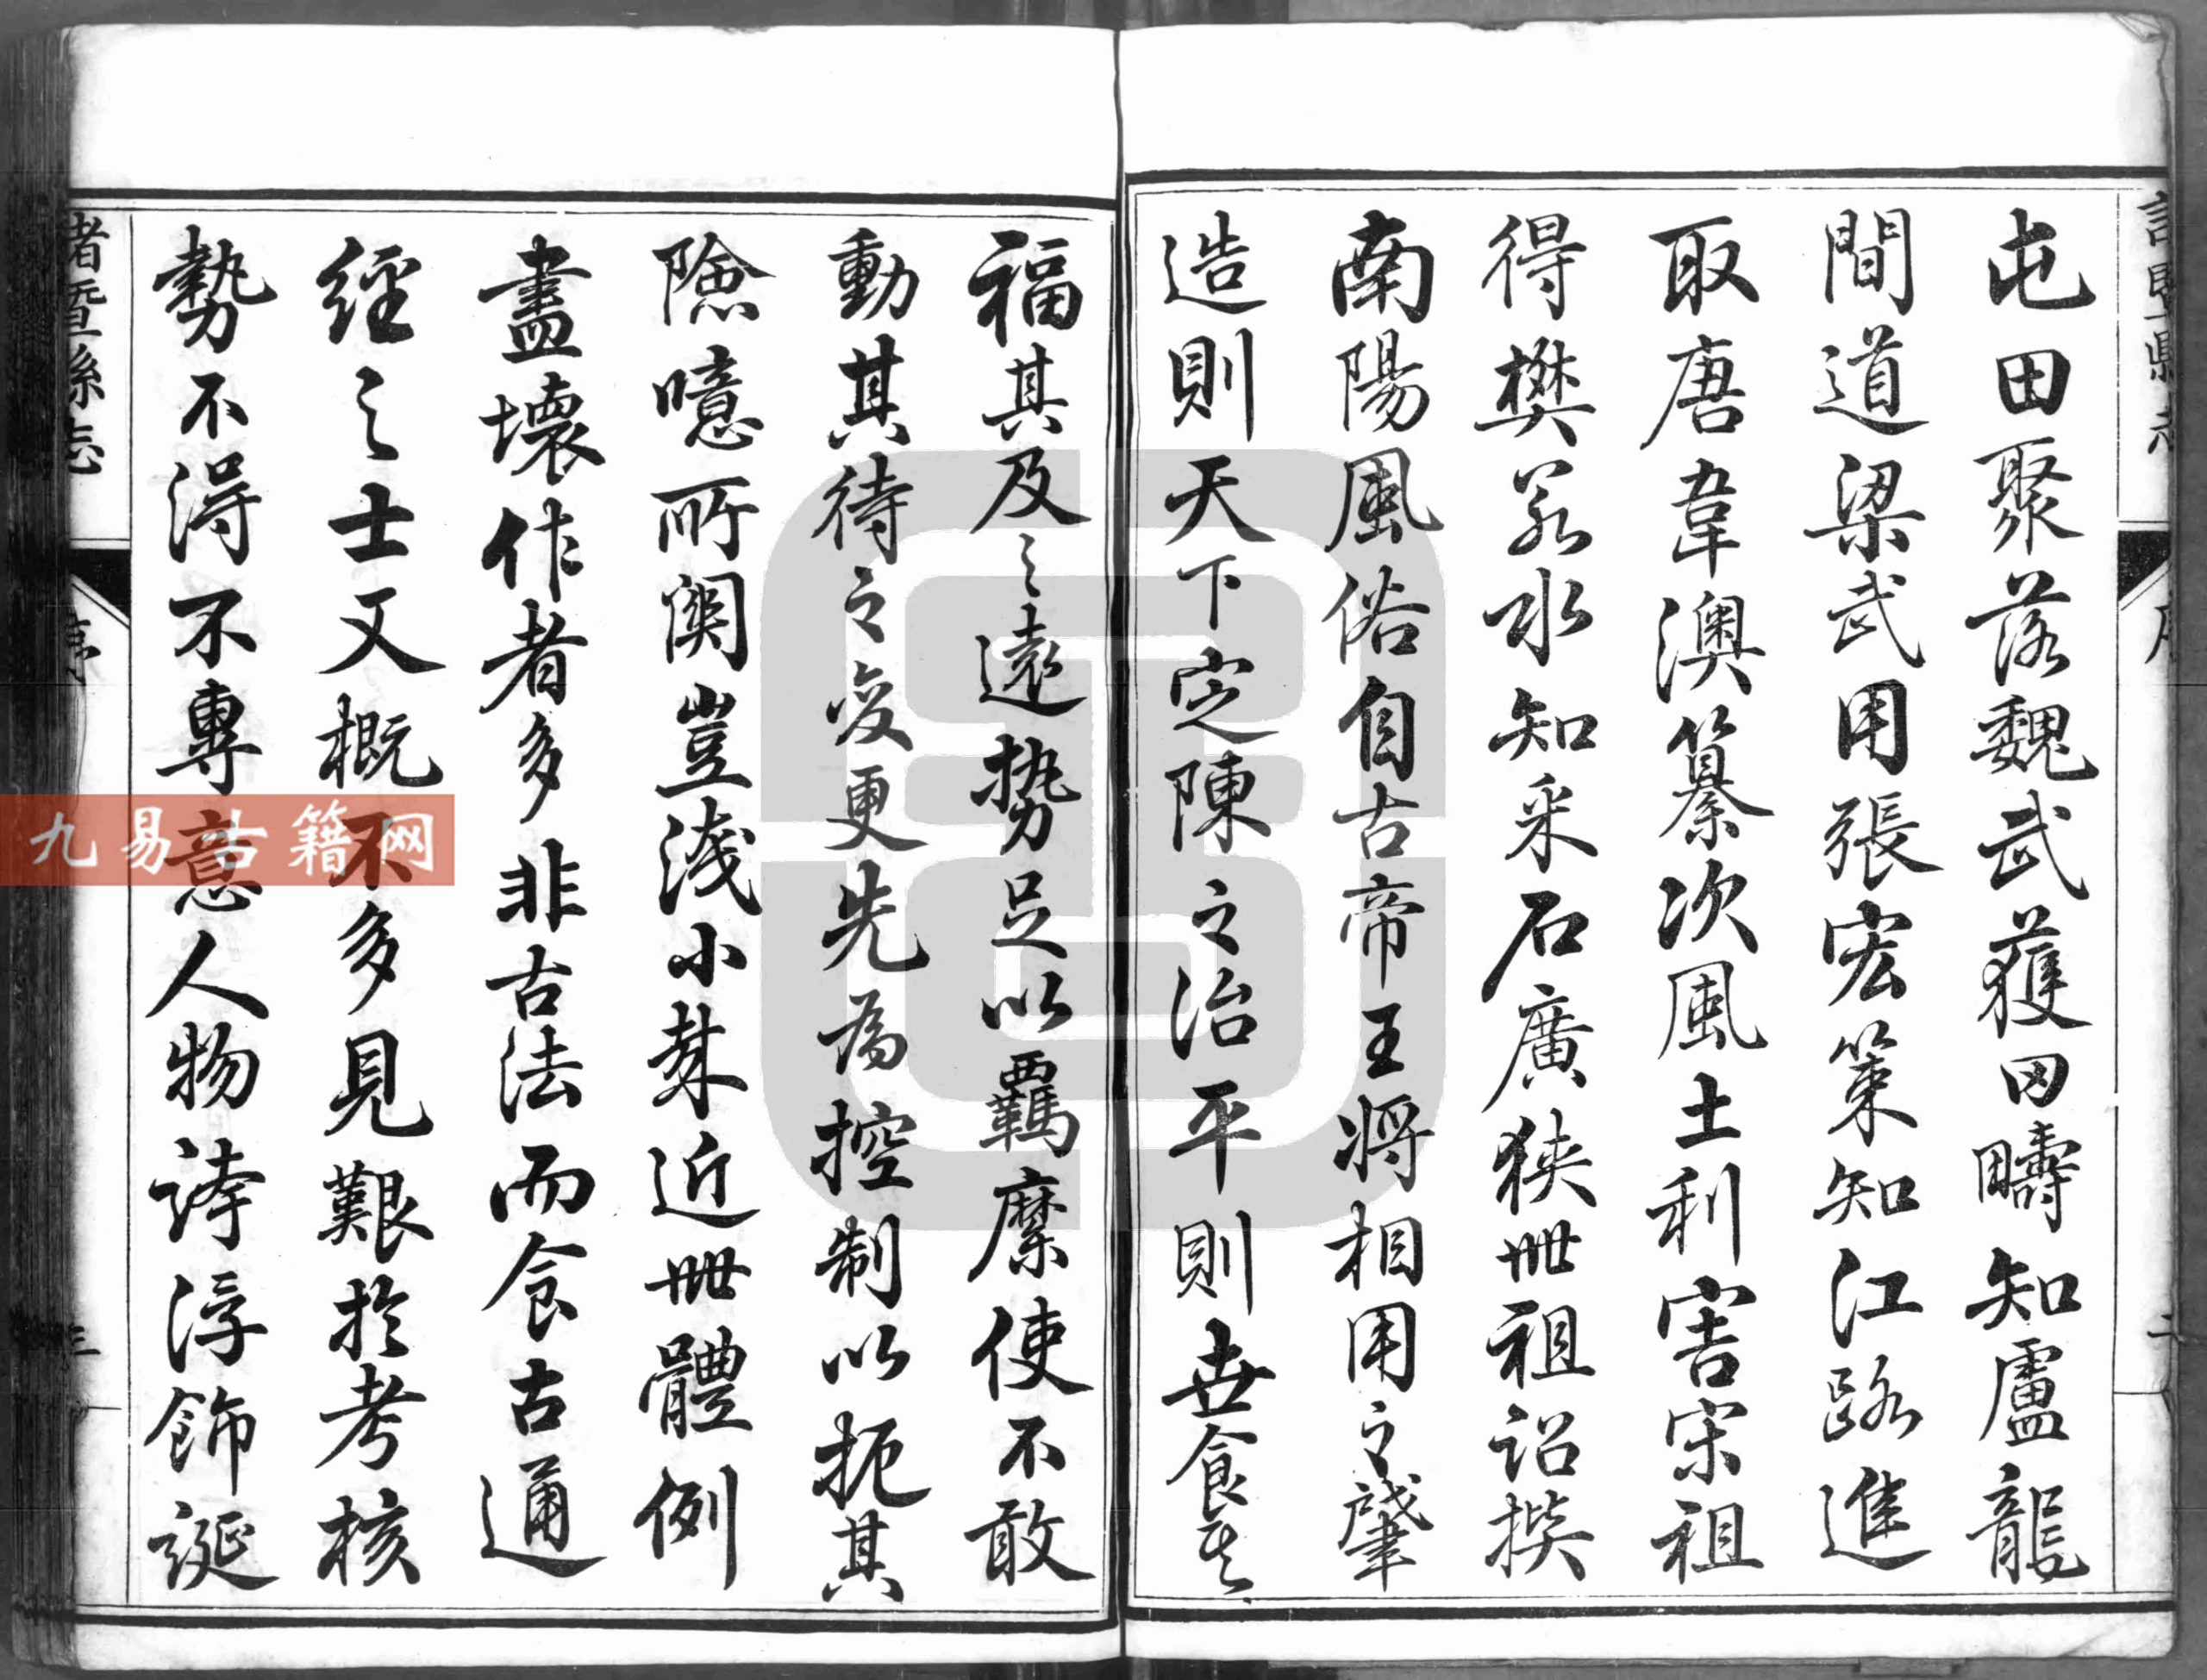 諸暨縣志
序
二
屯田聚落魏武獲田疇知盧龍
間道梁武用張宏策知江路進
取唐韋澳纂次風土利害宋祖
得樊若水知采石廣狹世祖詔撰
南陽風俗自古帝王將相用之肇
造則天下定陳之治平則世食其
福其及之遠勢足以羈縻使不敢
動其待之變更先為控制以扼其
險噫所関豈淺小哉近世體例
盡壞作者多非古法而食古通
經之士又概不多見艱於考核
勢不得不專意人物誇浮飾誕
諸暨縣志
序
三
九易古籍网